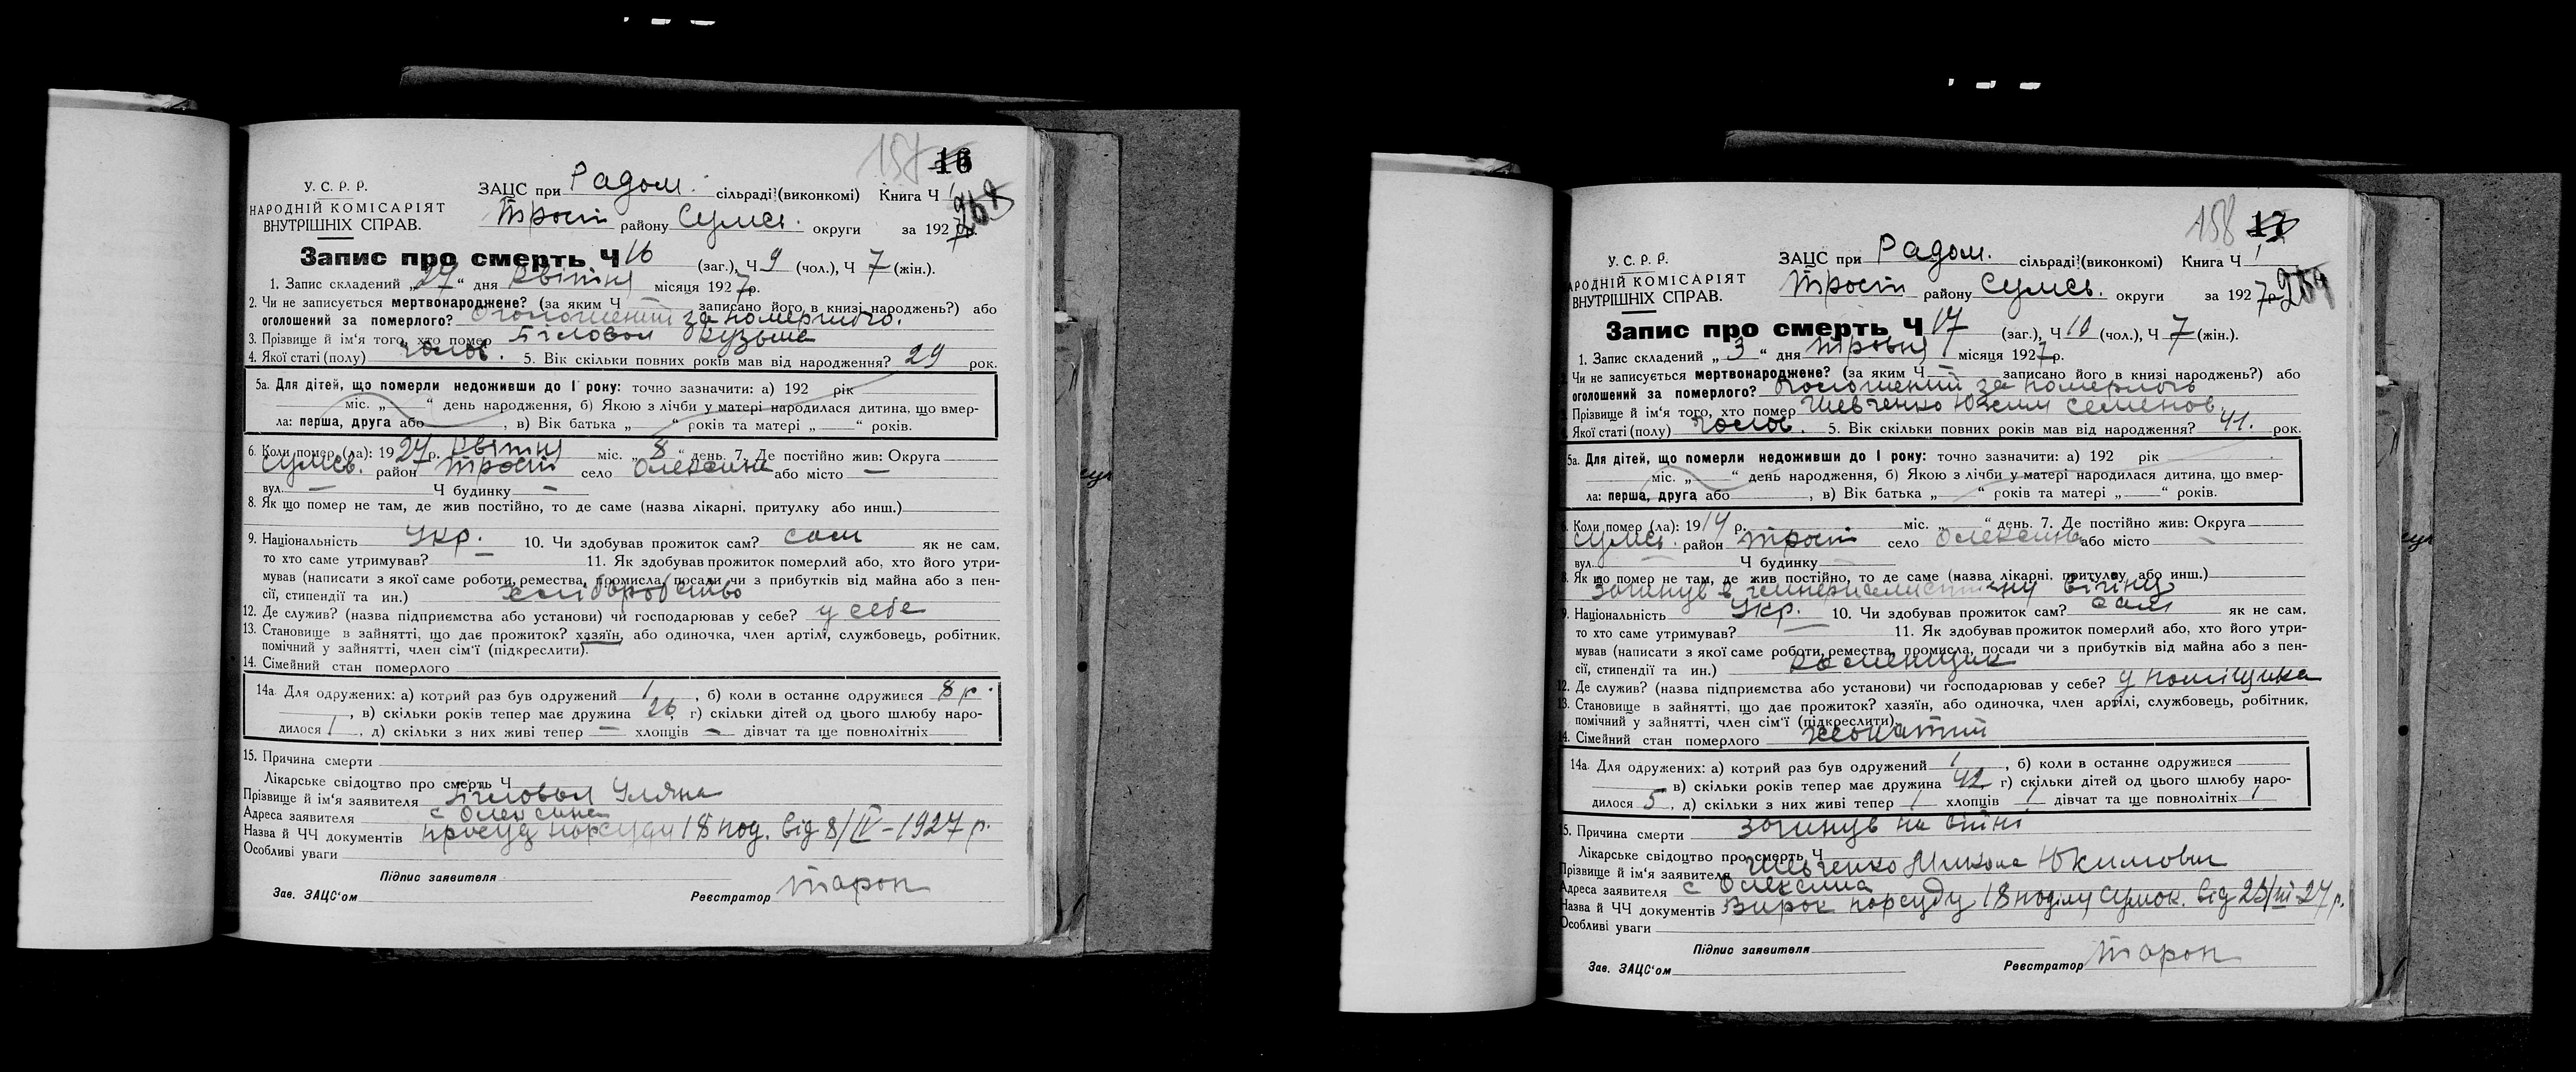 157 16
У. С. Р. Р.
НАРОДНІЙ КОМІСАРІЯТ
ВНУТРІШНІХ СПРАВ.
ЗАЦС при Радом. сільраді (виконкомі) Книга Ч 1
Трост району Сумськ. округи за 1927 р.
Запис про смерть Ч 16 (заг.), Ч 9 (чол.), Ч 7 (жін.).
1. Запис складений „27“ дня Квітня місяця 1927 р.
2. Чи не записується мертвонароджене? (за яким Ч — записано його в книзі народжень?) або
оголошений за померлого? Оголошений за померлого.
3. Прізвище й ім'я того, хто помер Біловол Кузьма
4. Якої статі (полу) чолов. 5. Вік скільки повних років мав від народження? 29 рок.
5а. Для дітей, що померли недоживши до 1 року: точно зазначити: а) 192 рік
міс. „ “ день народження, б) Якою з лічби у матері народилася дитина, що вмер-
ла: перша, друга або , в) Вік батька „ “ років та матері „ “ років.
6. Коли помер (ла): 1927 р. Квітня міс. „8“ день. 7. Де постійно жив: Округа
Сумськ. район Трост село Олексина або місто —
вул. — Ч будинку —
8. Як що помер не там, де жив постійно, то де саме (назва лікарні, притулку або инш.)
9. Національність Укр. 10. Чи здобував прожиток сам? сам як не сам,
то хто саме утримував? — 11. Як здобував прожиток померлий або, хто його утри-
мував (написати з якої саме роботи, ремества, промисла, посади чи з прибутків від майна або з пен-
сії, стипендії та ин.) хліборобство
12. Де служив? (назва підприємства або установи) чи господарював у себе? у себе
13. Становище в зайнятті, що дає прожиток? хазяїн, або одиночка, член артілі, службовець, робітник,
помічний у зайнятті, член сім'ї (підкреслити).
14. Сімейний стан померлого
14а. Для одружених: а) котрий раз був одружений 1, б) коли в останнє одружився 8 р.
, в) скільки років тепер має дружина 26, г) скільки дітей од цього шлюбу наро-
дилося 1, д) скільки з них живі тепер — хлопців — дівчат та ще повнолітніх
15. Причина смерти
Лікарське свідоцтво про смерть Ч
Прізвище й ім'я заявителя Біловол Уляна
Адреса заявителя с Олексина
Назва й ЧЧ документів нарсуду 18 под. від 8/IV-1927 р.
Особливі уваги
Підпис заявителя
Зав. ЗАЦС'ом Реєстратор
158 17
У. С. Р. Р.
АРОДНІЙ КОМІСАРІЯТ
ВНУТРІШНІХ СПРАВ.
ЗАЦС при Радом. сільраді (виконкомі) Книга Ч 1
Трост району Сумськ. округи за 1927 р. 259
Запис про смерть Ч 17 (заг.), Ч 10 (чол.), Ч 7 (жін.).
1. Запис складений „3“ дня Травня місяця 1927 р.
Чи не записується мертвонароджене? (за яким Ч — записано його в книзі народжень?) або
оголошений за померлого? Оголошений за померлого
Прізвище й ім'я того, хто помер Шевченко Юхим Семенов.
Якої статі (полу) чолов. 5. Вік скільки повних років мав від народження? 41. рок.
5а. Для дітей, що померли недоживши до 1 року: точно зазначити: а) 192 рік
міс. „ “ день народження, б) Якою з лічби у матері народилася дитина, що вмер-
ла: перша, друга або , в) Вік батька „ “ років та матері „ “ років.
Коли помер (ла): 1914 р. міс. „ “ день. 7. Де постійно жив: Округа
Сумськ. район Трост село Олексина або місто —
вул. Ч будинку
8. Як що помер не там, де жив постійно, то де саме (назва лікарні, притулку або инш.)
Загинув в імперіалистичну війну
9. Національність Укр. 10. Чи здобував прожиток сам? сам як не сам,
то хто саме утримував? — 11. Як здобував прожиток померлий або, хто його утри-
мував (написати з якої саме роботи, ремества, промисла, посади чи з прибутків від майна або з пен-
сії, стипендії та ин.) каменщик
12. Де служив? (назва підприємства або установи) чи господарював у себе? у поміщика
13. Становище в зайнятті, що дає прожиток? хазяїн, або одиночка, член артілі, службовець, робітник,
помічний у зайнятті, член сім'ї (підкреслити).
14. Сімейний стан померлого жонатий
14а. Для одружених: а) котрий раз був одружений 1, б) коли в останнє одружився
в) скільки років тепер має дружина 42 г) скільки дітей од цього шлюбу наро-
дилося 5, д) скільки з них живі тепер 1 хлопців 1 дівчат та ще повнолітніх 1
15. Причина смерти Загинув на війні
Лікарське свідоцтво про смерть Ч
Прізвище й ім'я заявителя Шевченко Микола Юхимович
Адреса заявителя с Олексина
Назва й ЧЧ документів Вирок нарсуду 18 поділу Сумок. від 23/III-27 р.
Особливі уваги
Підпис заявителя
Зав. ЗАЦС'ом Реєстратор